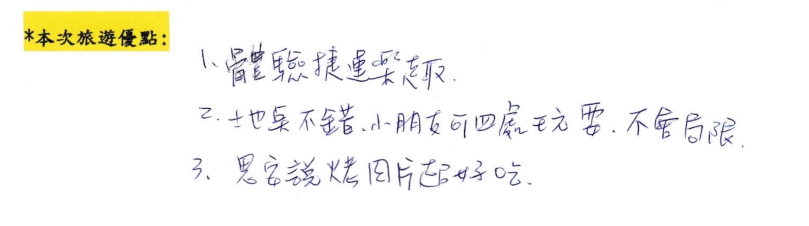 *本次旅遊優點:
1、體驗捷運樂趣.
2.土地桌不錯、小朋友可四處玩耍、不會局限.
3、恩安說烤肉片超好吃.